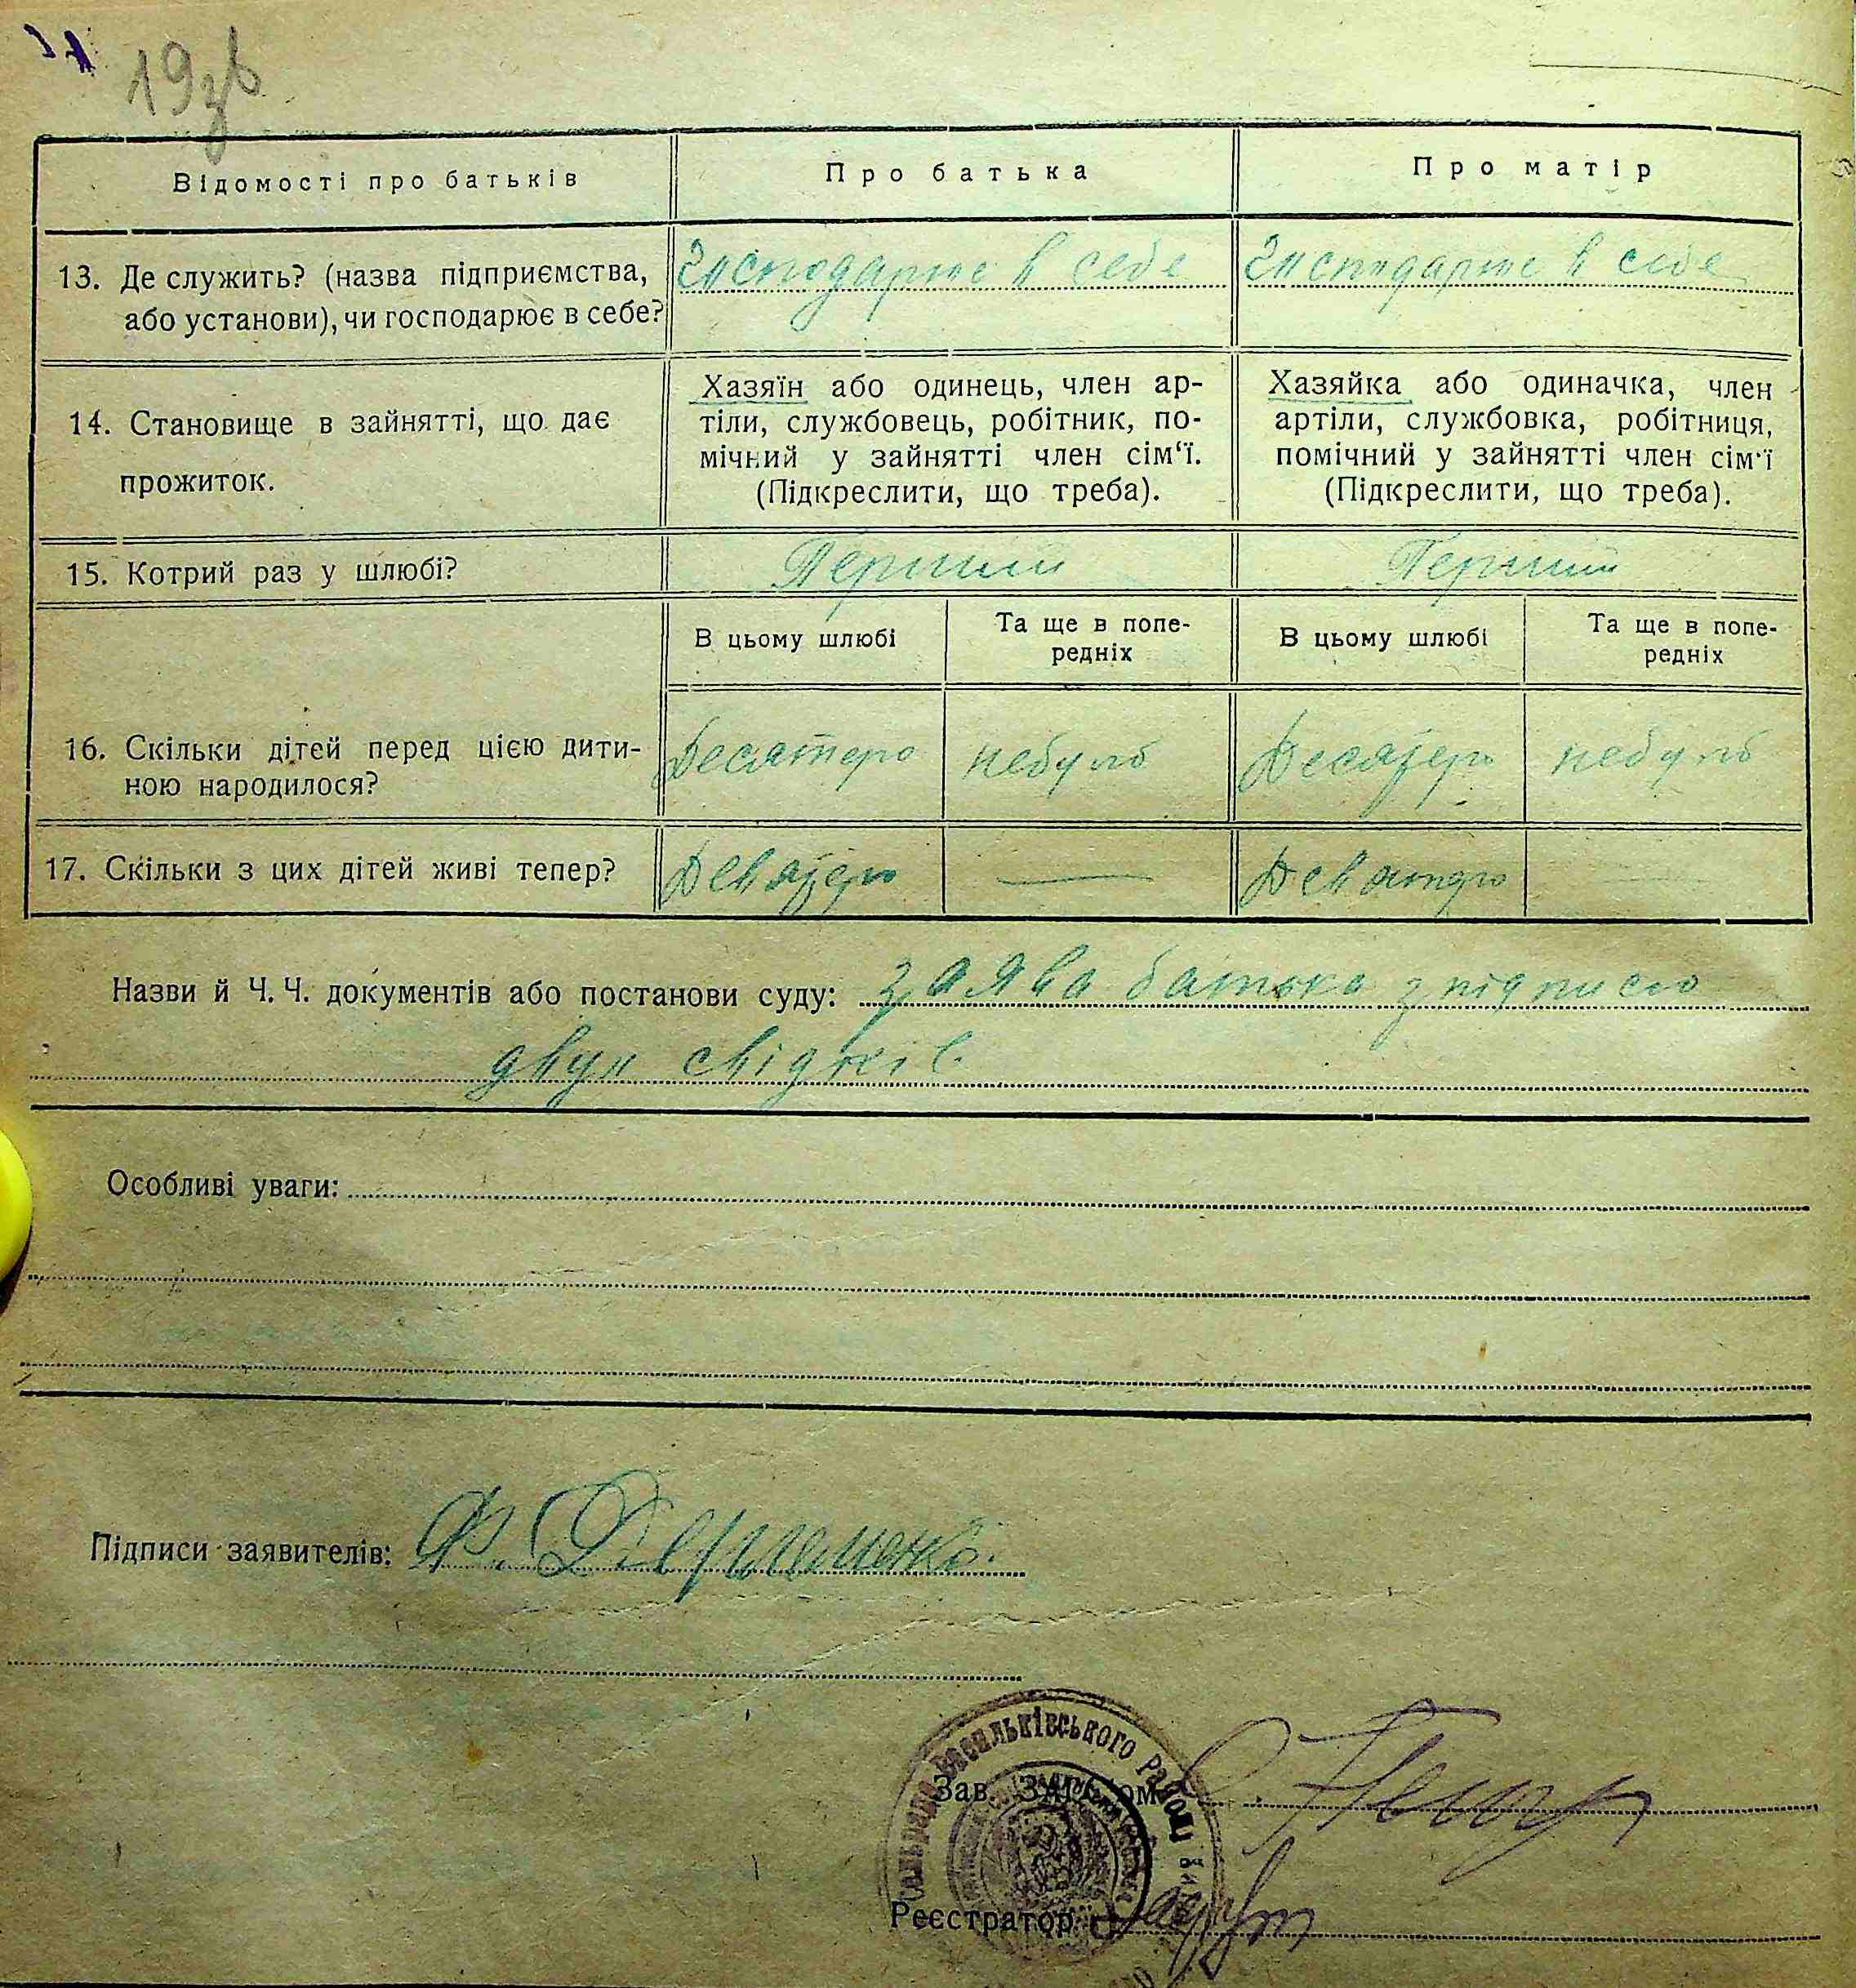 19зв
Відомості про батьків
Про батька
Про матір
13. Де служить? (назва підприємства,
або установи), чи господарює в себе?
Господарює в себе
Господарює в себе
14. Становище в зайнятті, що дає
прожиток.
Хазяїн або одинець, член ар-
тіли, службовець, робітник, по-
мічний у зайнятті член сім‘ї.
(Підкреслити, що треба).
Хазяйка або одиначка, член
артіли, службовка, робітниця,
помічний у зайнятті член сім'ї
(Підкреслити, що треба).
15. Котрий раз у шлюбі?
Перший
Перший
В цьому шлюбі
Та ще в попе-
редніх
В цьому шлюбі
Та ще в попе-
редніх
16. Скільки дітей перед цією дити-
ною народилося?
Десятеро
небуло
Десятеро
небуло
17. Скільки з цих дітей живі тепер?
Девятеро
—
Девятеро
Назви й Ч. Ч. документів або постанови суду: заява батька з підписю
двух свідків
Особливі уваги:
Підписи заявителів: Ф.
Васильківського району
Зав. ЗАГС'ом
Реєстратор